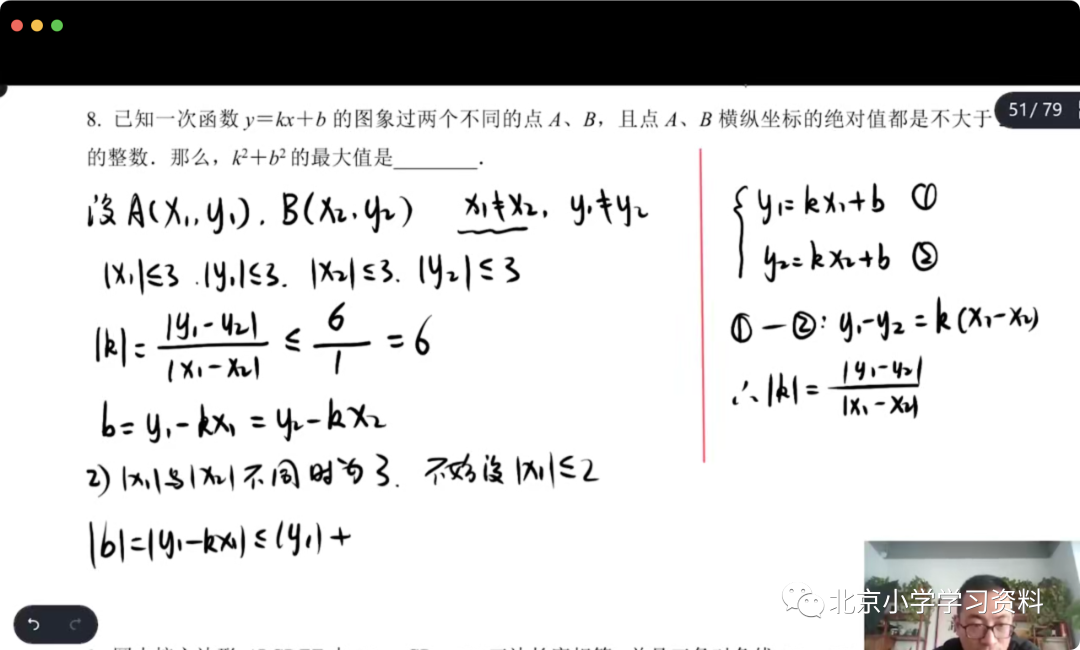 51/ 79
8. 已知一次函数 y=kx+b 的图象过两个不同的点 A、B，且点 A、B 横纵坐标的绝对值都是不大于
的整数．那么，k²+b² 的最大值是________．
设 A(x₁, y₁), B(x₂, y₂)  x₁≠x₂, y₁≠y₂
|x₁|≤3, |y₁|≤3, |x₂|≤3, |y₂|≤3
|k|= |y₁-y₂| / |x₁-x₂| ≤ 6/1 = 6
b= y₁-kx₁ = y₂-kx₂
2) |x₁|与|x₂|不同时为3. 不妨设|x₁|≤2
|b|=|y₁-kx₁|≤|y₁|+
y₁=kx₁+b ①
y₂=kx₂+b ②
①-②: y₁-y₂=k(x₁-x₂)
∴|k|= |y₁-y₂| / |x₁-x₂|
北京小学学习资料